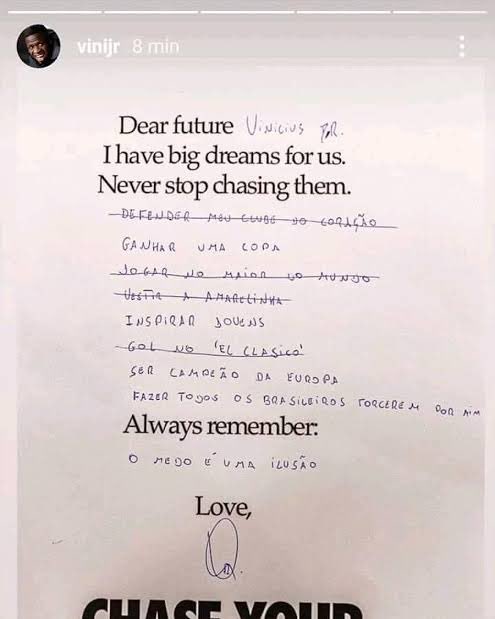 vinijr 8 min
Dear future Vinicius JR.
I have big dreams for us.
Never stop chasing them.
DEFENDER MEU CLUBE DO CORAÇÃO
GANHAR UMA COPA
JOGAR NO MAIOR DO MUNDO
VESTIR A AMARELINHA
INSPIRAR JOVENS
GOL NO 'EL CLASICO'
SER CAMPEÃO DA EUROPA
FAZER TODOS OS BRASILEIROS TORCEREM POR MIM
Always remember:
O MEDO É UMA ILUSÃO
Love,
CHASE YOUR